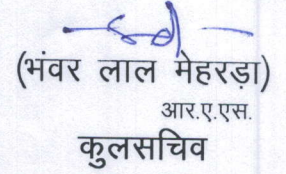 (भंवर लाल मेहरड़ा)
आर.ए.एस.
कुलसचिव